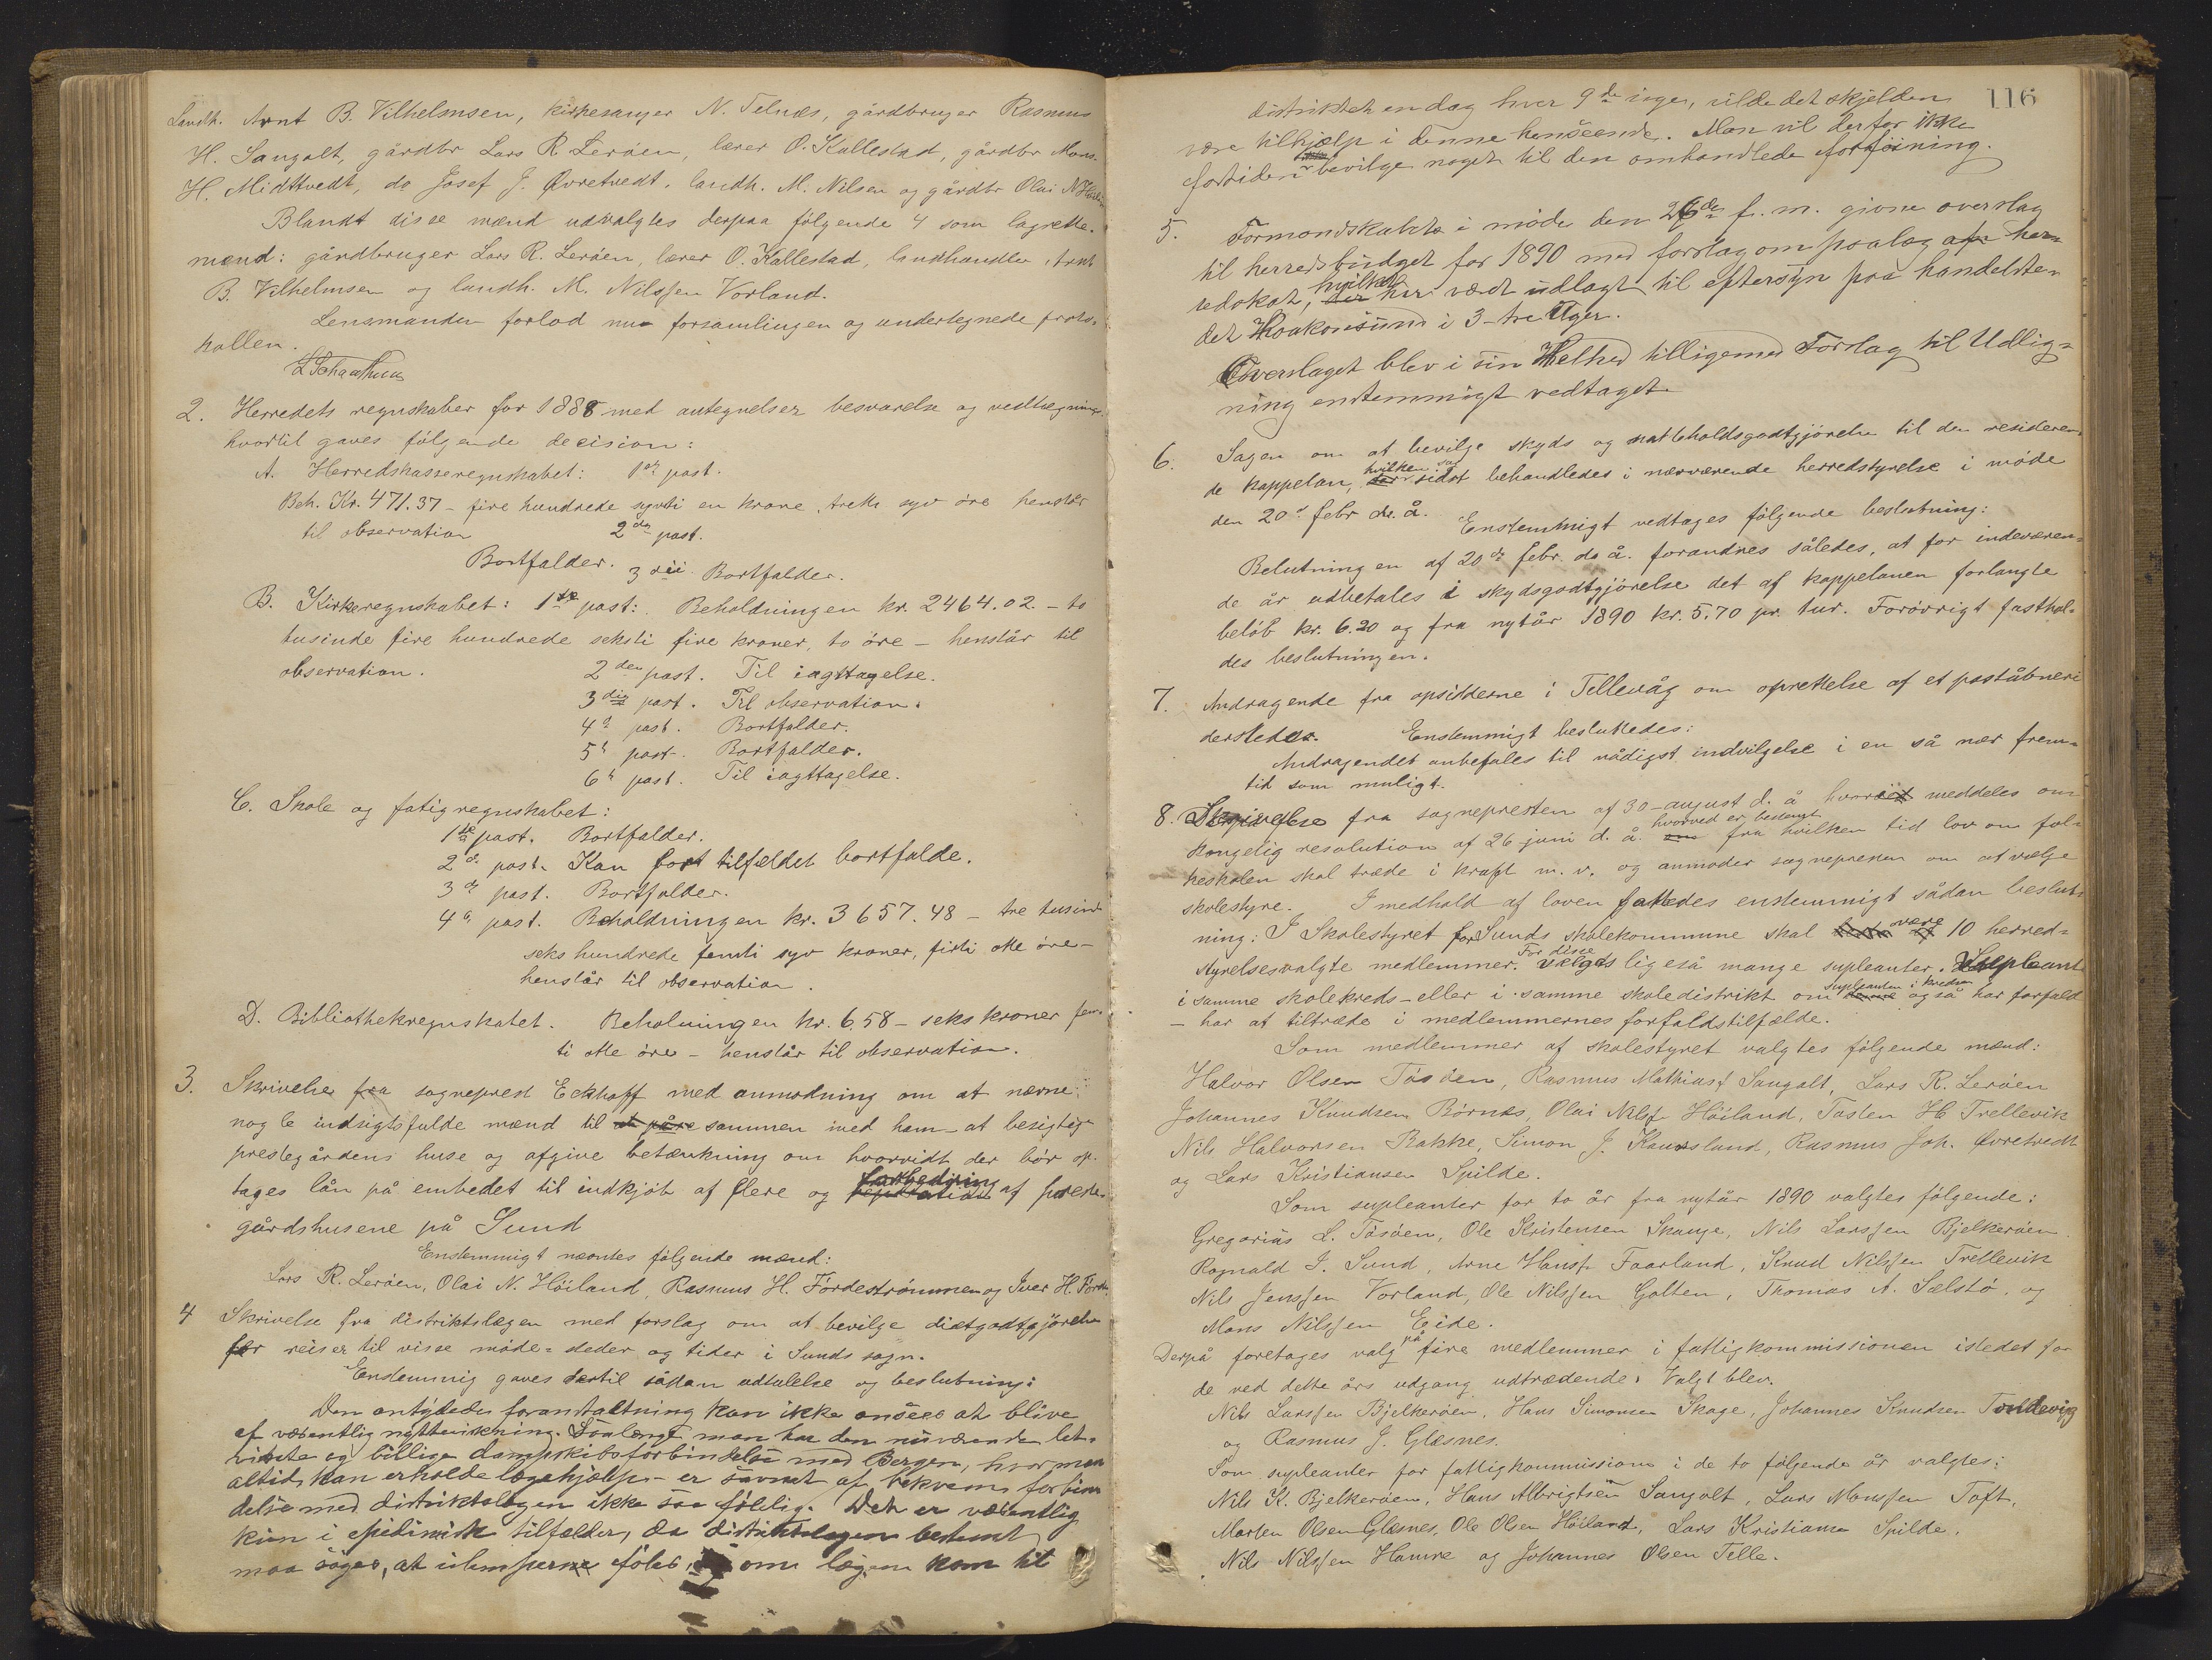 Landh. Arnt B. Vilhelmsen, kirkesanger N. Telnæs, gårdbruger Rasmus
H. Sangolt, gårdbr Lars R. Leröen, lærer O. Kallestad, gårdbr Mons
H. Midttvedt, do Josef J. Øvretvedt, landh. M. Nilsen og gårdbr Olai N
Blandt disse mænd udvalgtes derpaa følgende 4 som lagrette-
mænd: gårdbruger Lars R. Leröen, lærer O. Kallestad, landhandler Arnt
B. Vilhelmsen og landh. M. Nilssen Vorland.
Lensmanden forlod nu forsamlingen og undertegnede proto-
kollen.
2. Herredets regnskaber for 1888 med antegnelser besvarelse og vedtegninger
hvortil gaves følgende decision:
A. Herredskasseregnskabet: 1ste post.
Beh. Kr. 471.37 - fire hundrede sytti en krone, tretti syv øre henstår
til observation 2den post.
Bortfalder. 3die Bortfalder.
B. Kirkeregnskabet: 1ste post: Beholdningen kr. 2464.02 - to
tusinde fire hundrede seksti fire kroner, to öre - henstår til
observation. 2den post. Til iagttagelse.
3die post. Til observation.
4de post. Bortfalder.
5te post. Bortfalder.
6te post. Til iagttagelse.
C. Skole og fatigregnskabet:
1ste post. Bortfalder.
2den post. Kan fort tilfældet bortfalde.
3die post. Bortfalder.
4de post. Beholdningen kr. 3657.48 - tre tusind
seks hundrede femti syv kroner, firti otte öre -
henstår til observation.
D. Bibliothekregnskabet. Beholningen kr. 6,58 - seks kroner fem-
ti otte öre - henstår til observation.
3. Skrivelse fra sogneprest Eckhoff med anmodning om at nævne
nogle indsigtsfulde mænd til sammen med ham at besigtige
prestegårdens huse og afgive betænkning om hvorvidt der bör op-
tages lån på embedet til indkjöb af flere og forbedring af preste-
gårdshusene på Sund
Enstemmigt nævntes følgende mænd:
Lars R. Leröen, Olai N. Höiland, Rasmus H. Fördeströmmen og Iver H. Förde
4 Skrivelse fra distriktslægen med forslag om at bevilge diætgodtgjörelse
for reiser til visse möde-steder og tider i Sunds sogn.
Enstemmig gaves dertil sådan udtalelse og beslutning:
Den antydede foranstaltning kan ikke ansees at blive
af væsentlig nyttevirkning. Saalænge man har den nuværende let-
vinte og billige dampskibsforbindelse med Bergen, hvor man
altid kan erholde lægehjælp - er savnet af bekvem forbin-
delse med distriktslægen ikke saa følelig. Det er væsentlig
kun i epidimisk tilfælder, da distriktslægen bestemt
maa søges, at ulemperne føles, om lægen kom til
116
distriktet en dag hver 9de uge, vilde det skjelden
være tilhjælp i denne henseende. Man vil derfor ikke
fortiden bevilge noget til den omhandlede forföining.
5. Formandskabets i møde den 26de f. m. givne overslag
til herredsbudget for 1890 med forslag om paalæg af her-
redskat, hvilket har været udlagt til eftersyn paa handelste-
det Haakonsund i 3 - tre Uger.
Overslaget blev i sin Helhed tilligemed Forslag til Udlig-
ning enstemmigt vedtaget
6. Sagen om at bevilge skyds og natteholdsgodtgjörelse til den resideren-
de kappelan, hvilken sag sidst behandledes i nærværende herredstyrelse i möde
den 20de febr ds. å. Enstemmigt vedtages følgende beslutning:
Belutningen af 20de febr. ds å. forandres således, at for indeværen-
de år udbetales i skydsgodtgjörelse det af kappelanen forlangte
belöb kr. 6.20 og fra nytår 1890 kr. 5.70 pr. tur. Forövrigt fasthol-
des beslutningen.
7. Andragende fra opsidderne i Tellevåg om oprettelse af et poståbneri
dersteder. Enstemmigt besluttedes:
Andragendet anbefales til nådigst indvilgelse i en så nær frem-
tid som muligt.
8. Skrivelse fra sognepresten af 30 - august d. å hvori meddeles om
kongelig resolution af 26 juni d. å. hvorved er bestemt fra hvilken tid lov om fol-
keskolen skal træde i kraft m. v. og anmoder sognepresten om at vælge
skolestyre. I medhold af loven fattedes enstemmigt sådan beslut-
ning: I Skolestyret for Sunds skolekommune skal være 10 herred-
styrelsesvalgte medlemmer. For disse vælges ligeså mange supleanter. Supleant
i samme skolekreds - eller i samme skoledistrikt om supleanten i kredsen også har forfald
- har at tiltræde i medlemmernes forfaldstilfælde.
Som medlemmer af skolestyret valgtes følgende mænd:
Halvor Olsen Tösöen, Rasmus Mathiasf Sangolt, Lars R. Leröen
Johannes Knudsen Børnes, Olai Nilsf Höiland, Tosten H. Trellevik
Nils Halvorsen Bakke, Simon J. Kausland, Rasmus Joh. Øvretvedt
og Lars Kristiansen Spilde.
Som supleanter for to år fra nytår 1890 valgtes følgende:
Gregorius L. Tösöen, Ole Kristensen Skauge, Nils Larssen Bjelkeröen
Rognald I. Sund, Arne Hansf Faarland, Knud Nilssen Trellevik
Nils Jenssen Vorland, Ole Nilssen Golten, Thomas A. Sælstö, og
Mons Nilssen Eide.
Derpå foretages valg på fire medlemmer i fattigkommissionen istedet for
de ved dette års udgang udtrædende. Valgt blev.
Nils Larssen Bjelkeröen, Hans Simonsen Skage, Johannes Knudsen Tondevig
og Rasmus J. Glæsnes.
Som supleanter for fattigkommissionen i de to følgende år valgtes:
Nils K. Bjelkeröen, Hans Albrigtsen Sangolt, Lars Monssen Toft,
Marten Olsen Glæsnes, Ole Olsen Höiland, Lars Kristiansen Spilde,
Nils Nilssen Hamre og Johannes Olsen Telle.